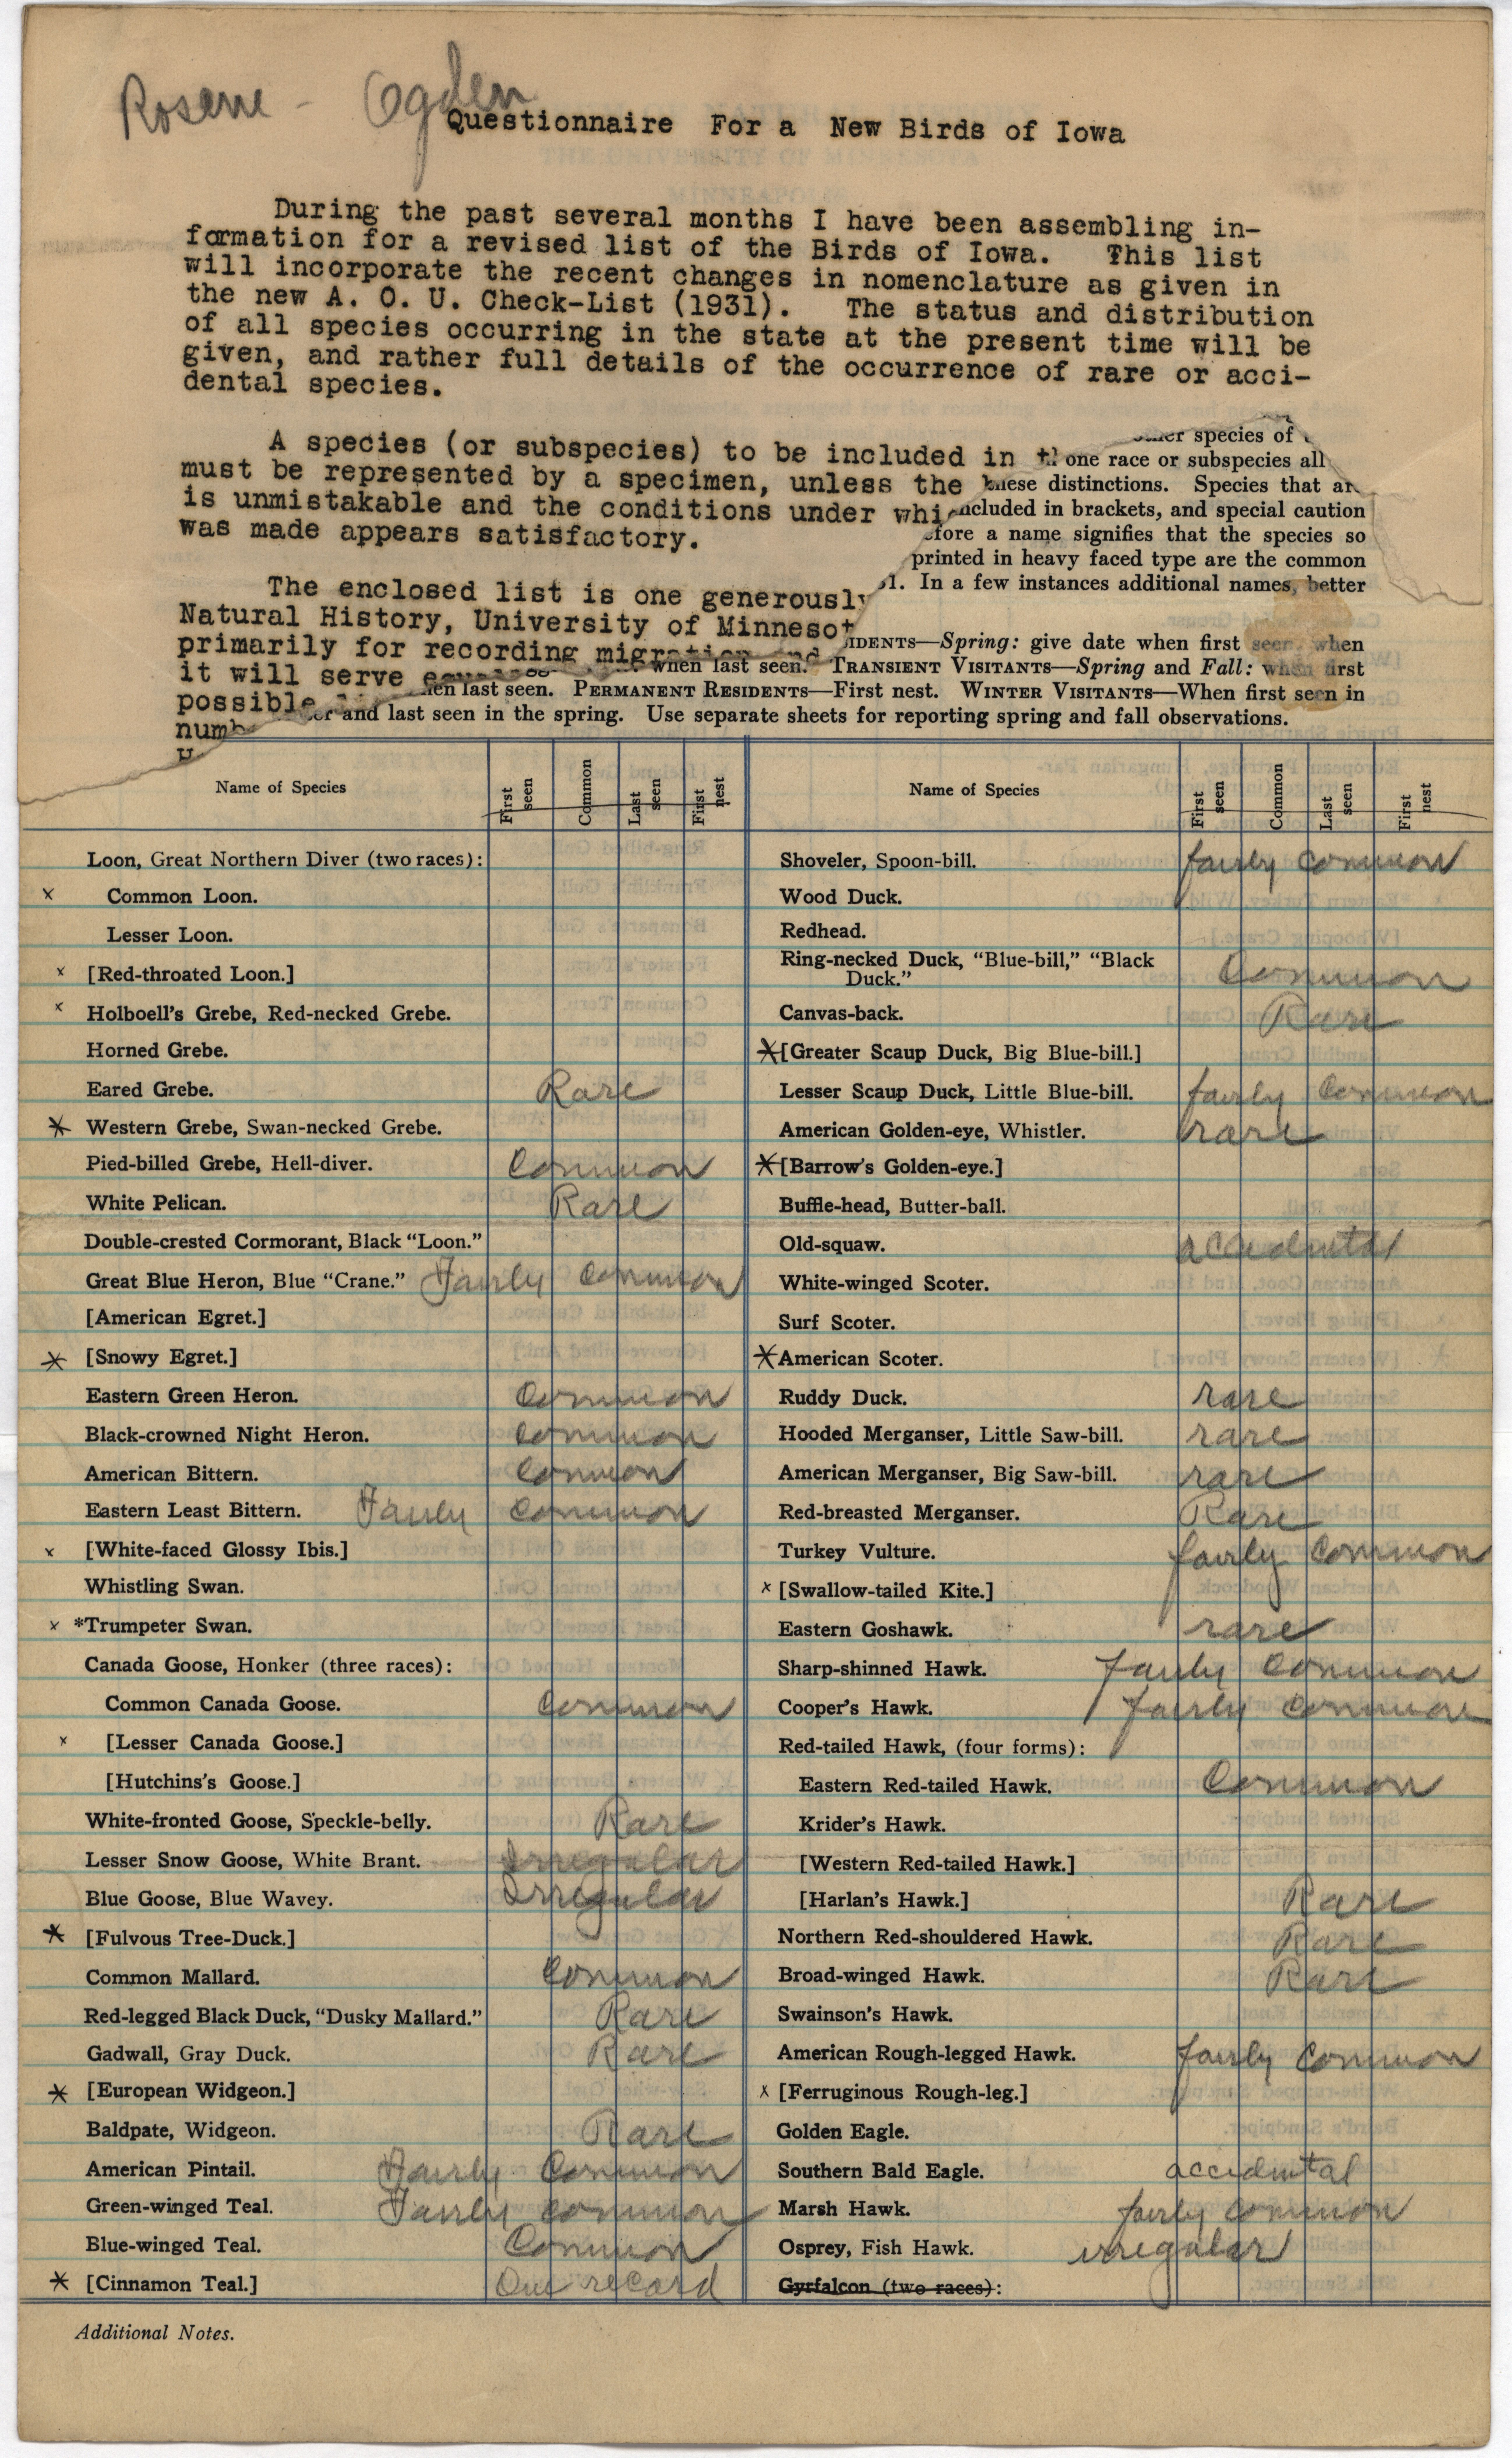 Rosene - Ogden
Questionnaire For a New Birds of Iowa
During the past several months I have been assembling in-
formation for a revised list of the Birds of Iowa. This list
will incorporate the recent changes in nomenclature as given in
the new A. O. U. Check-List (1931). The status and distribution
of all species occurring in the state at the present time will be
given, and rather full details of the occurrence of rare or acci-
dental species.
A species (or subspecies) to be included in
must be represented by a specimen, unless the
is unmistakable and the conditions under
was made appears satisfactory.
The enclosed list is one
Natural History, University of
primarily for recording
it will serve
possible
species of
one race or subspecies all
these distinctions. Species that
included in brackets, and special caution
before a name signifies that the species so
printed in heavy faced type are the common
In a few instances additional names, better
IDENTS—Spring: give date when first seen when
when last seen. TRANSIENT VISITANTS—Spring and Fall: when first
last seen. PERMANENT RESIDENTS—First nest. WINTER VISITANTS—When first seen in
and last seen in the spring. Use separate sheets for reporting spring and fall observations.
Name of Species First seen Common Last seen First nest
Loon, Great Northern Diver (two races):
x Common Loon.
Lesser Loon.
x [Red-throated Loon.]
x Holboell's Grebe, Red-necked Grebe.
Horned Grebe.
Eared Grebe. Rare
* Western Grebe, Swan-necked Grebe.
Pied-billed Grebe, Hell-diver. Common
White Pelican. Rare
Double-crested Cormorant, Black "Loon."
Great Blue Heron, Blue "Crane." Fairly Common
[American Egret.]
* [Snowy Egret.]
Eastern Green Heron. Common
Black-crowned Night Heron. Common
American Bittern. Common
Eastern Least Bittern. Fairly Common
x [White-faced Glossy Ibis.]
Whistling Swan.
x *Trumpeter Swan.
Canada Goose, Honker (three races):
Common Canada Goose. Common
x [Lesser Canada Goose.]
[Hutchins's Goose.]
White-fronted Goose, Speckle-belly. Rare
Lesser Snow Goose, White Brant. Irregular
Blue Goose, Blue Wavey. Irregular
* [Fulvous Tree-Duck.]
Common Mallard. Common
Red-legged Black Duck, "Dusky Mallard." Rare
Gadwall, Gray Duck. Rare
* [European Widgeon.]
Baldpate, Widgeon. Rare
American Pintail. Fairly Common
Green-winged Teal. Fairly Common
Blue-winged Teal. Common
* [Cinnamon Teal.] One record
Name of Species First seen Common Last seen First nest
Shoveler, Spoon-bill. fairly Common
Wood Duck.
Redhead.
Ring-necked Duck, "Blue-bill," "Black
Duck." Common
Canvas-back. Rare
* [Greater Scaup Duck, Big Blue-bill.]
Lesser Scaup Duck, Little Blue-bill. fairly Common
American Golden-eye, Whistler. rare
* [Barrow's Golden-eye.]
Buffle-head, Butter-ball.
Old-squaw. accidental
White-winged Scoter.
Surf Scoter.
* American Scoter.
Ruddy Duck. rare
Hooded Merganser, Little Saw-bill. rare
American Merganser, Big Saw-bill. rare
Red-breasted Merganser. Rare
Turkey Vulture. fairly Common
x [Swallow-tailed Kite.]
Eastern Goshawk. rare
Sharp-shinned Hawk. fairly Common
Cooper's Hawk. fairly Common
Red-tailed Hawk, (four forms):
Eastern Red-tailed Hawk. Common
Krider's Hawk.
[Western Red-tailed Hawk.]
[Harlan's Hawk.] Rare
Northern Red-shouldered Hawk. Rare
Broad-winged Hawk. Rare
Swainson's Hawk.
American Rough-legged Hawk. fairly Common
x [Ferruginous Rough-leg.]
Golden Eagle.
Southern Bald Eagle. accidental
Marsh Hawk. fairly common
Osprey, Fish Hawk. irregular
Gyrfalcon (two races):
Additional Notes.